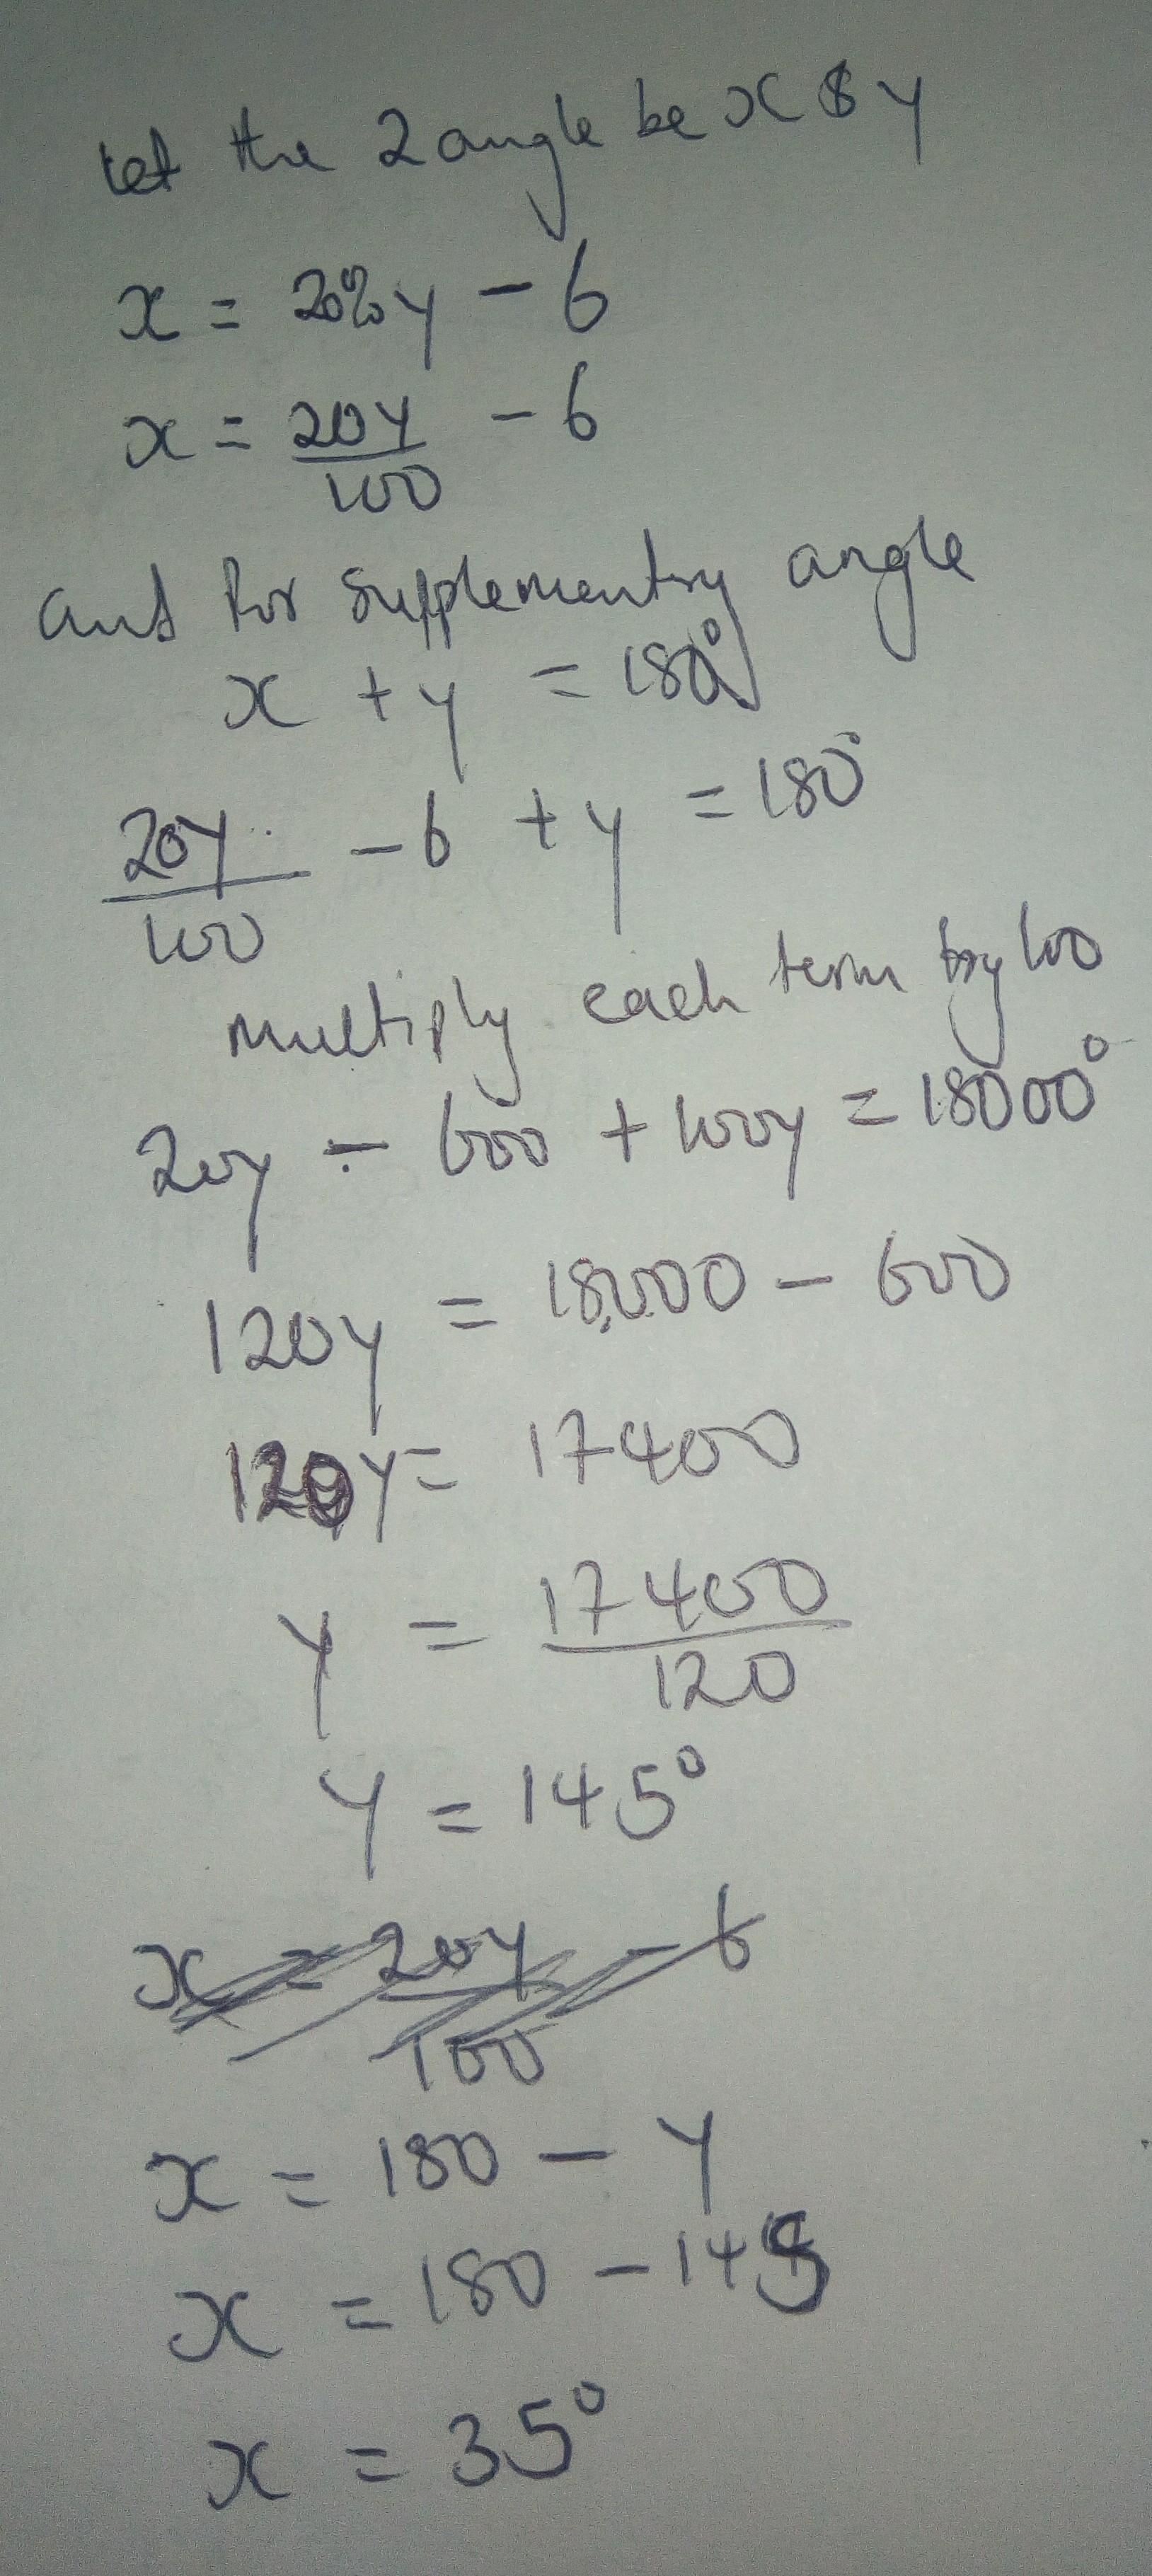 Let the 2 angle be x & y
x = 20%y - 6
x = 20y/100 - 6
and for supplementry angle
x + y = 180°
20y/100 - 6 + y = 180°
Multiply each term by 100
20y - 600 + 100y = 18000°
120y = 18,000 - 600
120y = 17400
y = 17400/120
y = 145°
x = 20y/100 - 6
x = 180 - y
x = 180 - 145
x = 35°